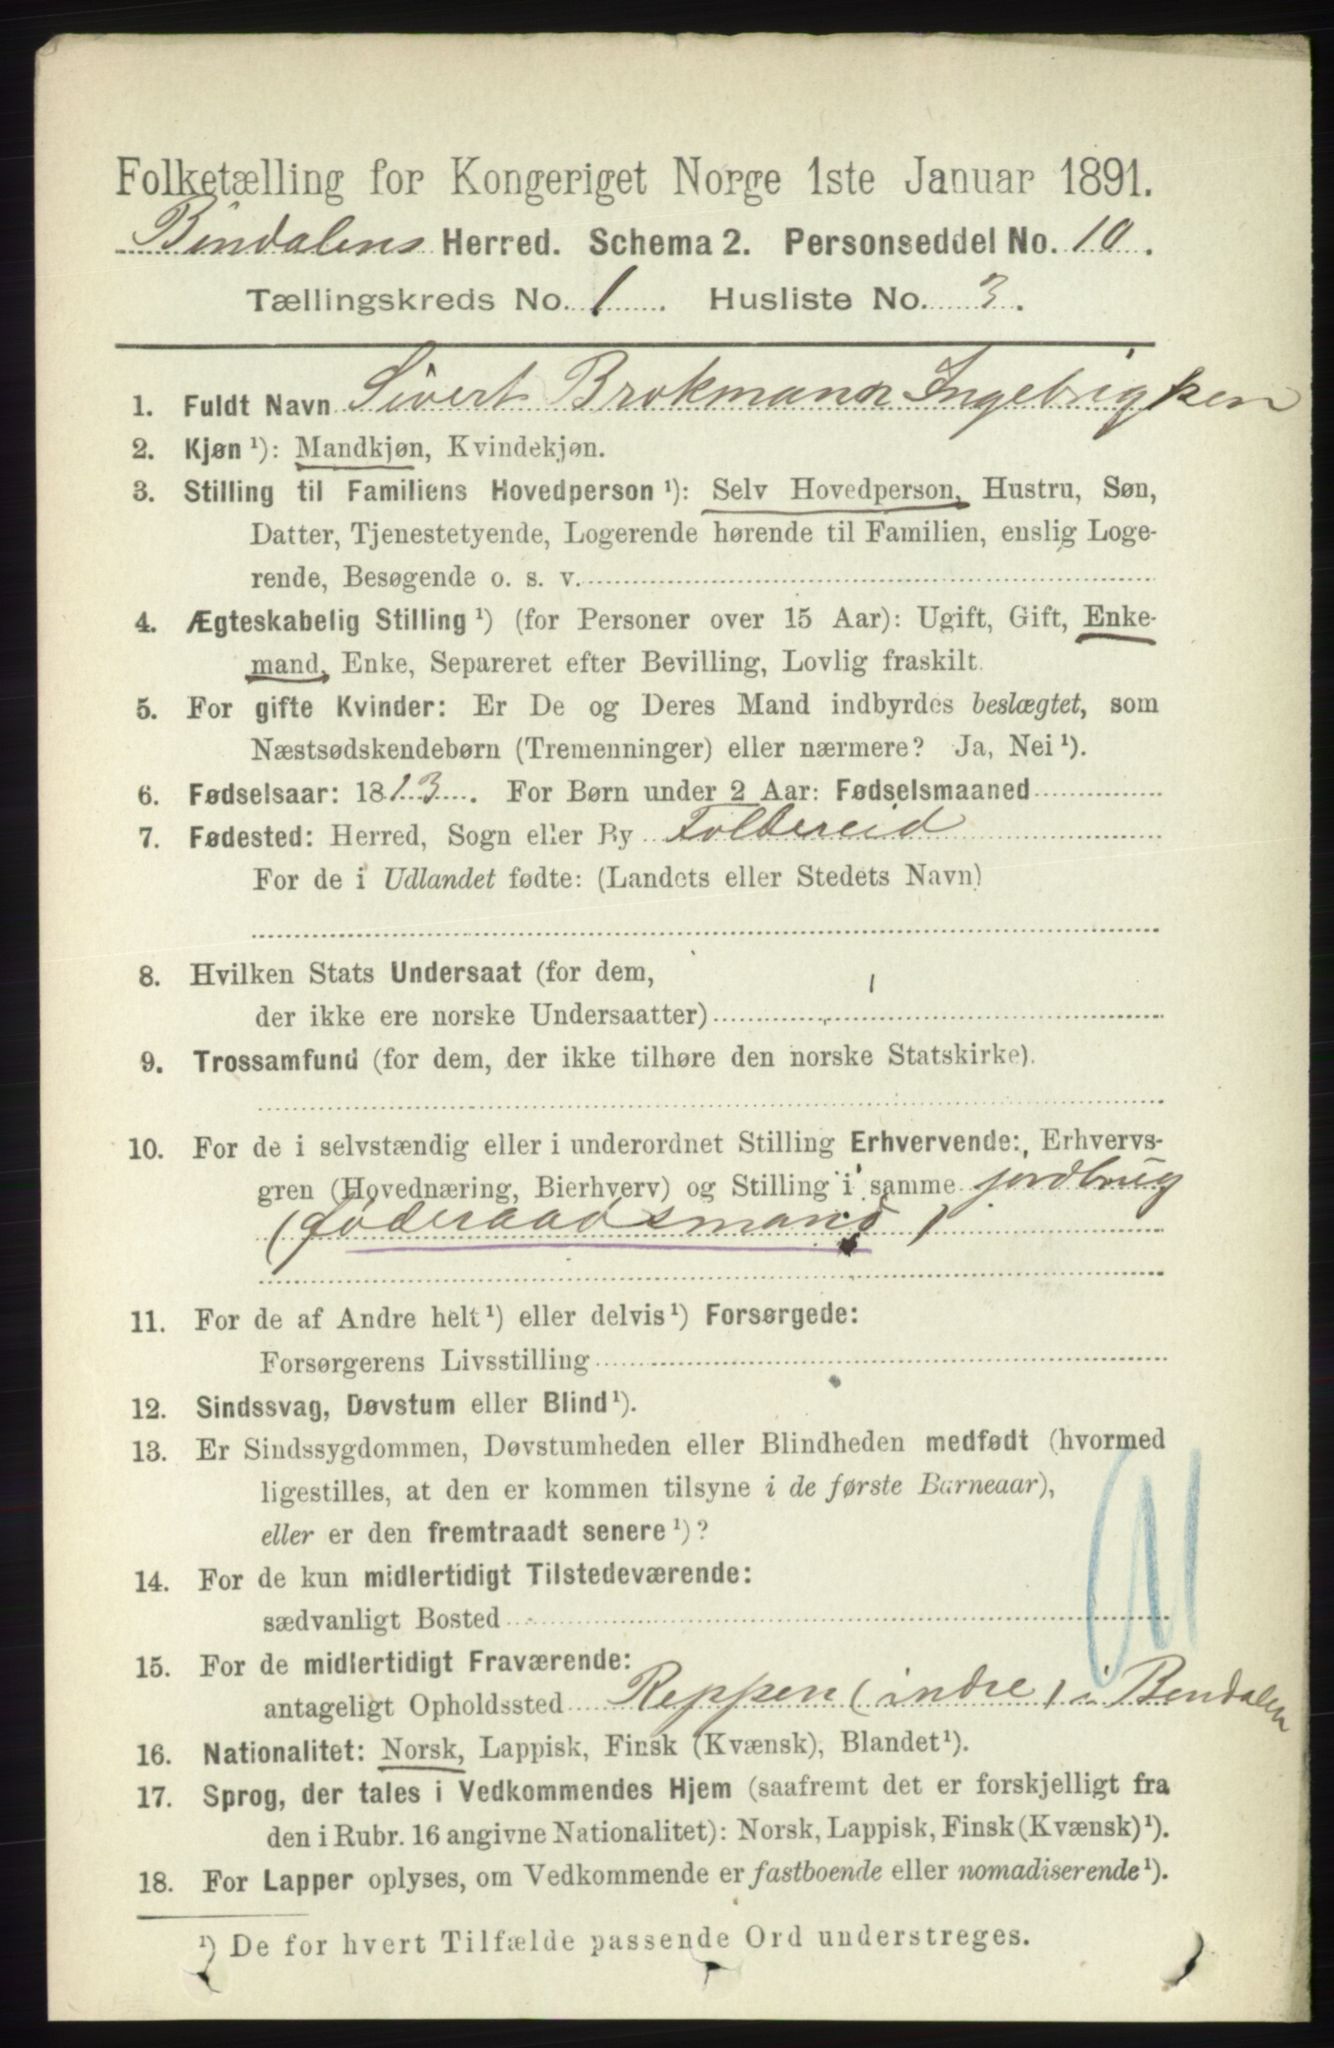 Folketælling for Kongeriget Norge 1ste Januar 1891.
Bindalens Herred. Schema 2. Personseddel No. 10.
Tællingskreds No. 1. Husliste No. 3.
1. Fuldt Navn Sivert Brokmann Ingebrigtsen
2. Kjøn ¹): Mandkjøn, Kvindekjøn.
3. Stilling til Familiens Hovedperson ¹): Selv Hovedperson, Hustru, Søn,
Datter, Tjenestetyende, Logerende hørende til Familien, enslig Loge-
rende, Besøgende o. s. v.
4. Ægteskabelig Stilling ¹) (for Personer over 15 Aar): Ugift, Gift, Enke-
mand, Enke, Separeret efter Bevilling, Lovlig fraskilt.
5. For gifte Kvinder: Er De og Deres Mand indbyrdes beslægtet, som
Næstsødskendebørn (Tremenninger) eller nærmere? Ja, Nei ¹).
6. Fødselsaar: 1813. For Børn under 2 Aar: Fødselsmaaned
7. Fødested: Herred, Sogn eller By Foldereid
For de i Udlandet fødte: (Landets eller Stedets Navn)
8. Hvilken Stats Undersaat (for dem,
der ikke ere norske Undersaatter)
9. Trossamfund (for dem, der ikke tilhøre den norske Statskirke).
10. For de i selvstændig eller i underordnet Stilling Erhvervende:, Erhvervs-
gren (Hovednæring, Bierhverv) og Stilling i samme jordbrug
(føderaadsmand)
11. For de af Andre helt ¹) eller delvis ¹) Forsørgede:
Forsørgerens Livsstilling
12. Sindssvag, Døvstum eller Blind ¹).
13. Er Sindssygdommen, Døvstumheden eller Blindheden medfødt (hvormed
ligestilles, at den er kommen tilsyne i de første Barneaar),
eller er den fremtraadt senere ¹)?
14. For de kun midlertidigt Tilstedeværende:
sædvanligt Bosted
15. For de midlertidigt Fraværende:
antageligt Opholdssted Reppen (indre) i Bendalen
16. Nationalitet: Norsk, Lappisk, Finsk (Kvænsk), Blandet ¹).
17. Sprog, der tales i Vedkommendes Hjem (saafremt det er forskjelligt fra
den i Rubr. 16 angivne Nationalitet): Norsk, Lappisk, Finsk (Kvænsk) ¹).
18. For Lapper oplyses, om Vedkommende er fastboende eller nomadiserende ¹).
¹) De for hvert Tilfælde passende Ord understreges.